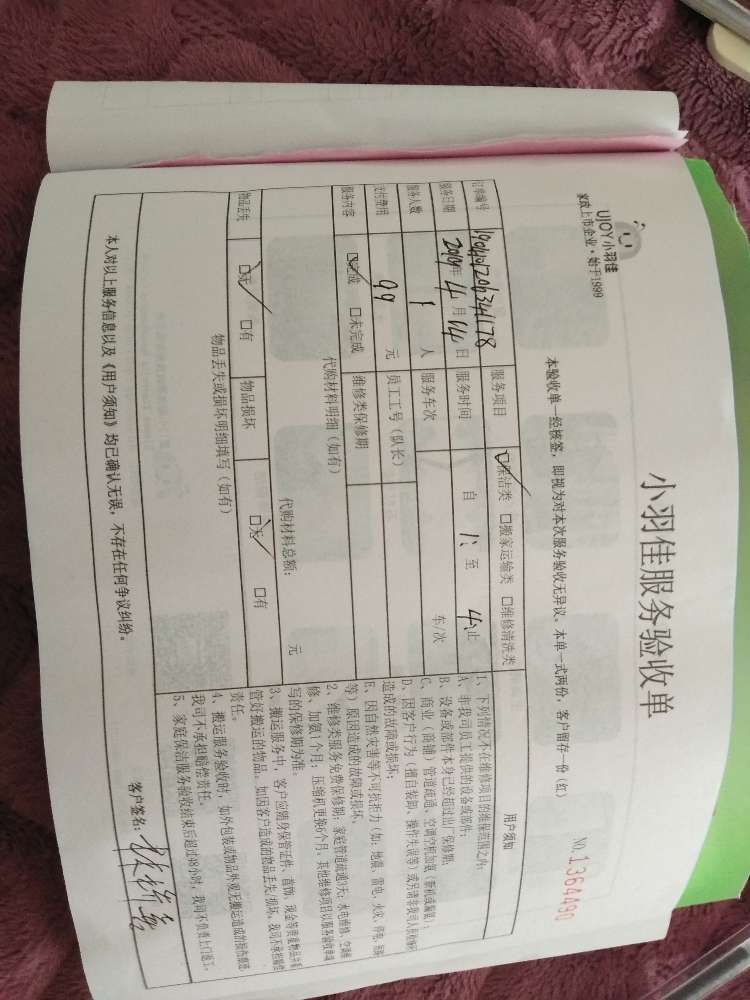 UJOY小羽佳
家政上市企业·始于1999
小羽佳服务验收单
本验收单一经核签，即视为对本次服务验收无异议。本单一式两份，客户留存一份（红）
NO.1364490
订单编号 服务项目 保洁类 □搬家运输类 □维修清洗类
服务日期 2019年4月14日 服务时间 自 1: 至 4: 止
服务人数 1 人 服务车次 车/次
支付费用 99 元 员工工号（队长）
服务内容 完成 □未完成 维修类保修期
代购材料明细（如有）
代购材料总额： 元
物品丢失 □无 □有 物品损坏 □无 □有
物品丢失或损坏明细填写（如有）
用户须知
1、下列情况不在维修项目的维保范围之内：
A、非我司员工提供的设备或部件；
B、设备或部件本身已经超过出厂保修期；
C、商业（商铺）管道疏通、空调空机加氨
D、因客户行为（擅自拆卸、操作失误等
造成的故障或损坏；
E、因自然灾害等不可抗拒力（如：地震、雷电、火灾、停电
等）原因造成的故障或损坏。
2、维修类服务免费保修期：家庭管道疏通3天；水电维修、空调维
修、加氨1个月；压缩机更换6个月。其他维修项目以服务验收单填
写的保修期为准。
3、搬运服务中，客户应随身保管证件、首饰、现金等贵重物品并看
管好搬运的物品。如因客户造成的物品丢失/损坏，我司不承担赔偿
责任。
4、搬运服务验收时，如外包装或物品外观无搬运造成的损伤痕迹，
我司不承担赔偿责任。
5、家庭保洁服务验收结束后超过48小时，我司不负责上门返工。
本人对以上服务信息以及《用户须知》均已确认无误，不存在任何争议纠纷。
客户签名：